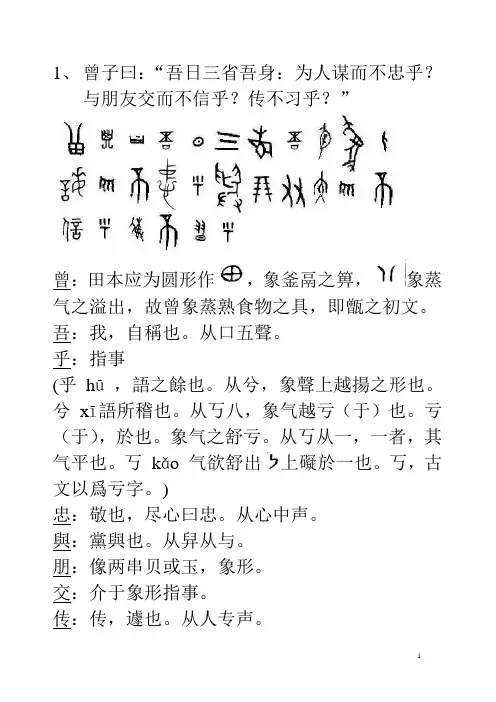 1、曾子曰：“吾日三省吾身：为人谋而不忠乎？
与朋友交而不信乎？传不习乎？”
曾：田本应为圆形作，象釜鬲之箅，象蒸
气之溢出，故曾象蒸熟食物之具，即甑之初文。
吾：我，自稱也。从口五聲。
乎：指事
(乎 hū ，語之餘也。从兮，象聲上越揚之形也。
兮 xī語所稽也。从丂八，象气越亏（于）也。亏
（于），於也。象气之舒亏。从丂从一，一者，其
气平也。丂 kǎo 气欲舒出上礙於一也。丂，古
文以爲亏字。)
忠：敬也，尽心曰忠。从心中声。
與：黨與也。从舁从与。
朋：像两串贝或玉，象形。
交：介于象形指事。
传：传，遽也。从人专声。
1